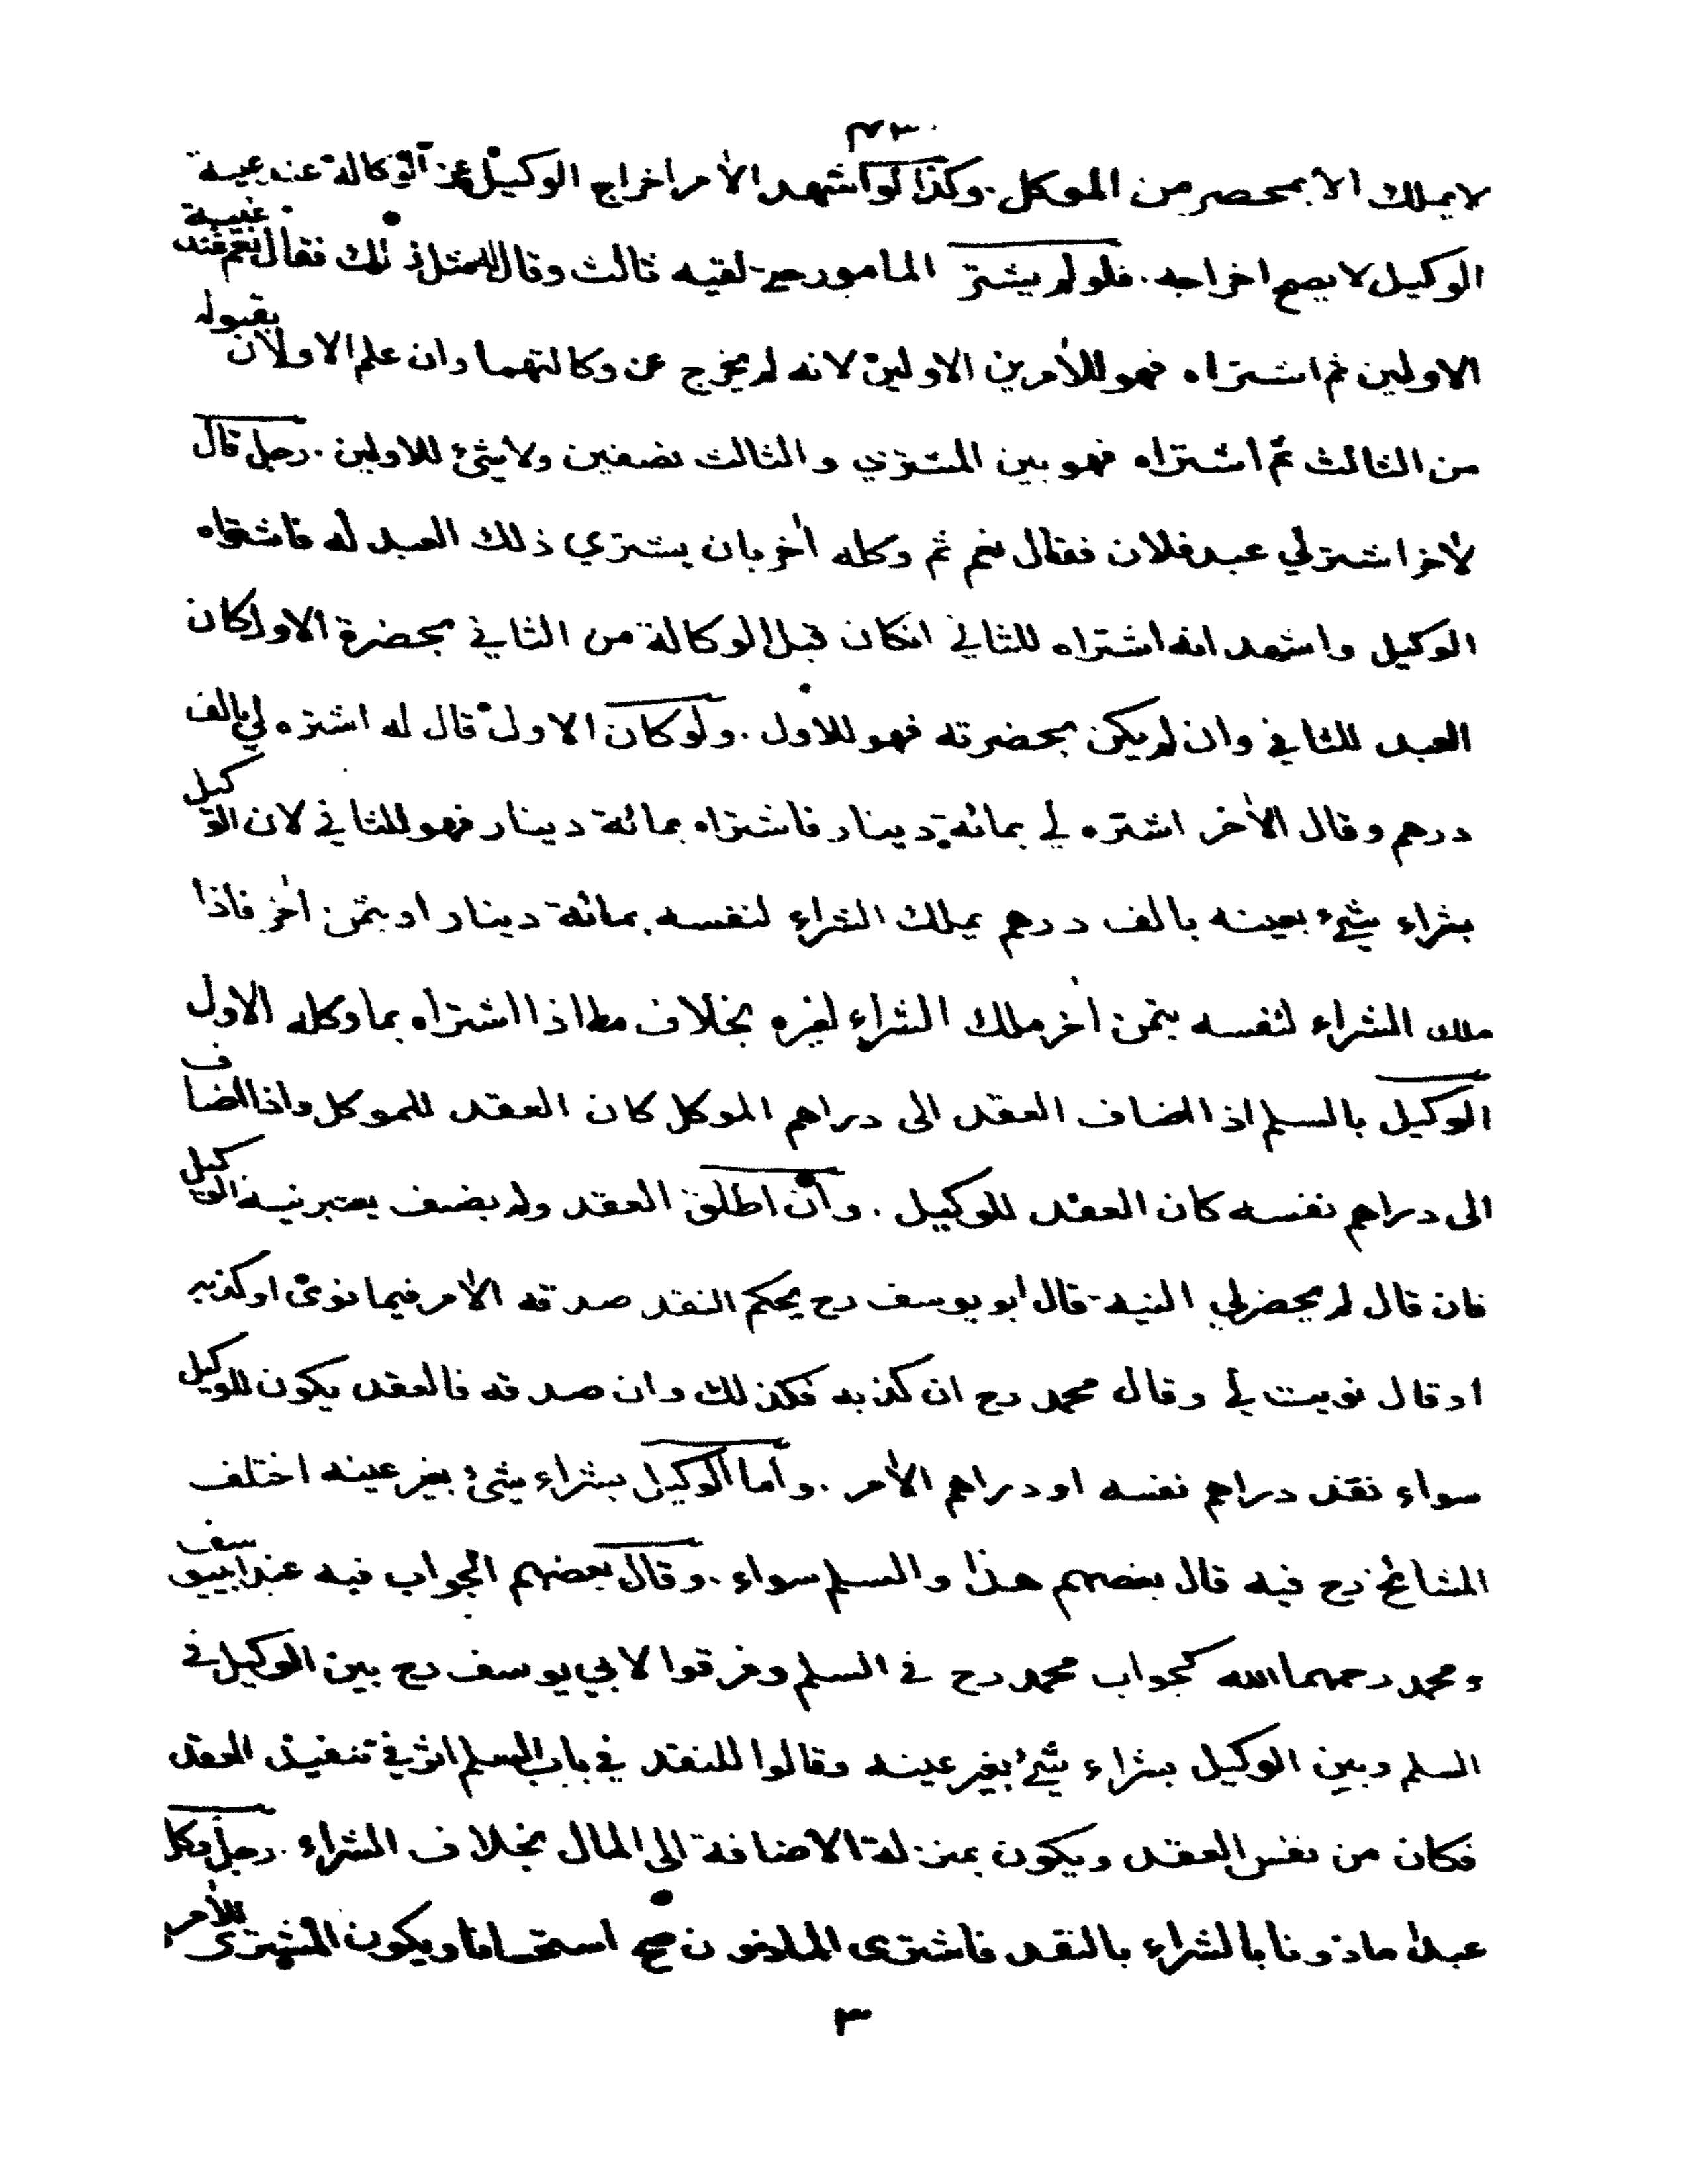 لا يملك الا بمحضر من الموكل . وكذا لو اشهد الاٰمر اخراج الوكيل عن الوكالة عند غيبة
الوكيل لا يصح اخراجه . فلو لم يشتر المامور حتى لقيه ثالث وقال له مثل ذلك فقال نعم عند غيبة
الاولين ثم اشتراه فهو للاٰمرين الاولين لانه لم يخرج عن وكالتهما وان علم الاولان بقبوله
من الثالث ثم اشتراه فهو بين المشتري والثالث نصفين ولا شئ للاولين . رجل قال
لاٰخر اشتر لي عبد فلان فقال نعم ثم وكله اٰخر بان يشتري ذلك العبد له فاشتراه
الوكيل واشهد انه اشتراه للثاني انكان قبل الوكالة من الثاني بمحضرة الاول كان
العبد للثاني وان لم يكن بمحضرته فهو للاول . ولو كان الاول قال له اشتره لي بالف
درهم وقال الاٰخر اشتره لي بمائة دينار فاشتراه بمائة دينار فهو للثاني لان الوكيل
بشراء شيء بعينه بالف درهم يملك الشراء لنفسه بمائة دينار او بثمن اٰخر فاذا
ملك الشراء لنفسه بثمن اٰخر ملك الشراء لغيره بخلاف ما اذا اشتراه بما وكله الاول
الوكيل بالسلم اذا اضاف العقد الى دراهم الموكل كان العقد للموكل واذا اضاف
الى دراهم نفسه كان العقد للوكيل . وان اطلق العقد ولم يضف يعتبر نية الوكيل
فان قال لم يحضرلي النية قال ابو يوسف رح يحكم النقد صدقه الاٰمر فيما نوى او كذبه
او قال نويت لي وقال محمد رح ان كذبه فكذلك وان صدقه فالعقد يكون للوكيل
سواء نقد دراهم نفسه او دراهم الاٰمر . واما الوكيل بشراء شئ بغير عينه اختلف
المشائخ رح فيه قال بعضهم هذا والسلم سواء . وقال بعضهم الجواب فيه عند ابي يوسف
ومحمد رحمهما الله كجواب محمد رح في السلم وفرقوا لابي يوسف رح بين الوكيل في
السلم وبين الوكيل بشراء شئ بغير عينه وقالوا للنقد في باب السلم اثر في تنفيذ العقد
فكان من نفس العقد ويكون بمنزلة الاضافة الى المال بخلاف الشراء . رجل وكل
عبدا ماذونا بالشراء بالنقد فاشترى الماذون صح استحسانا ويكون المشترى للاٰمر
٣